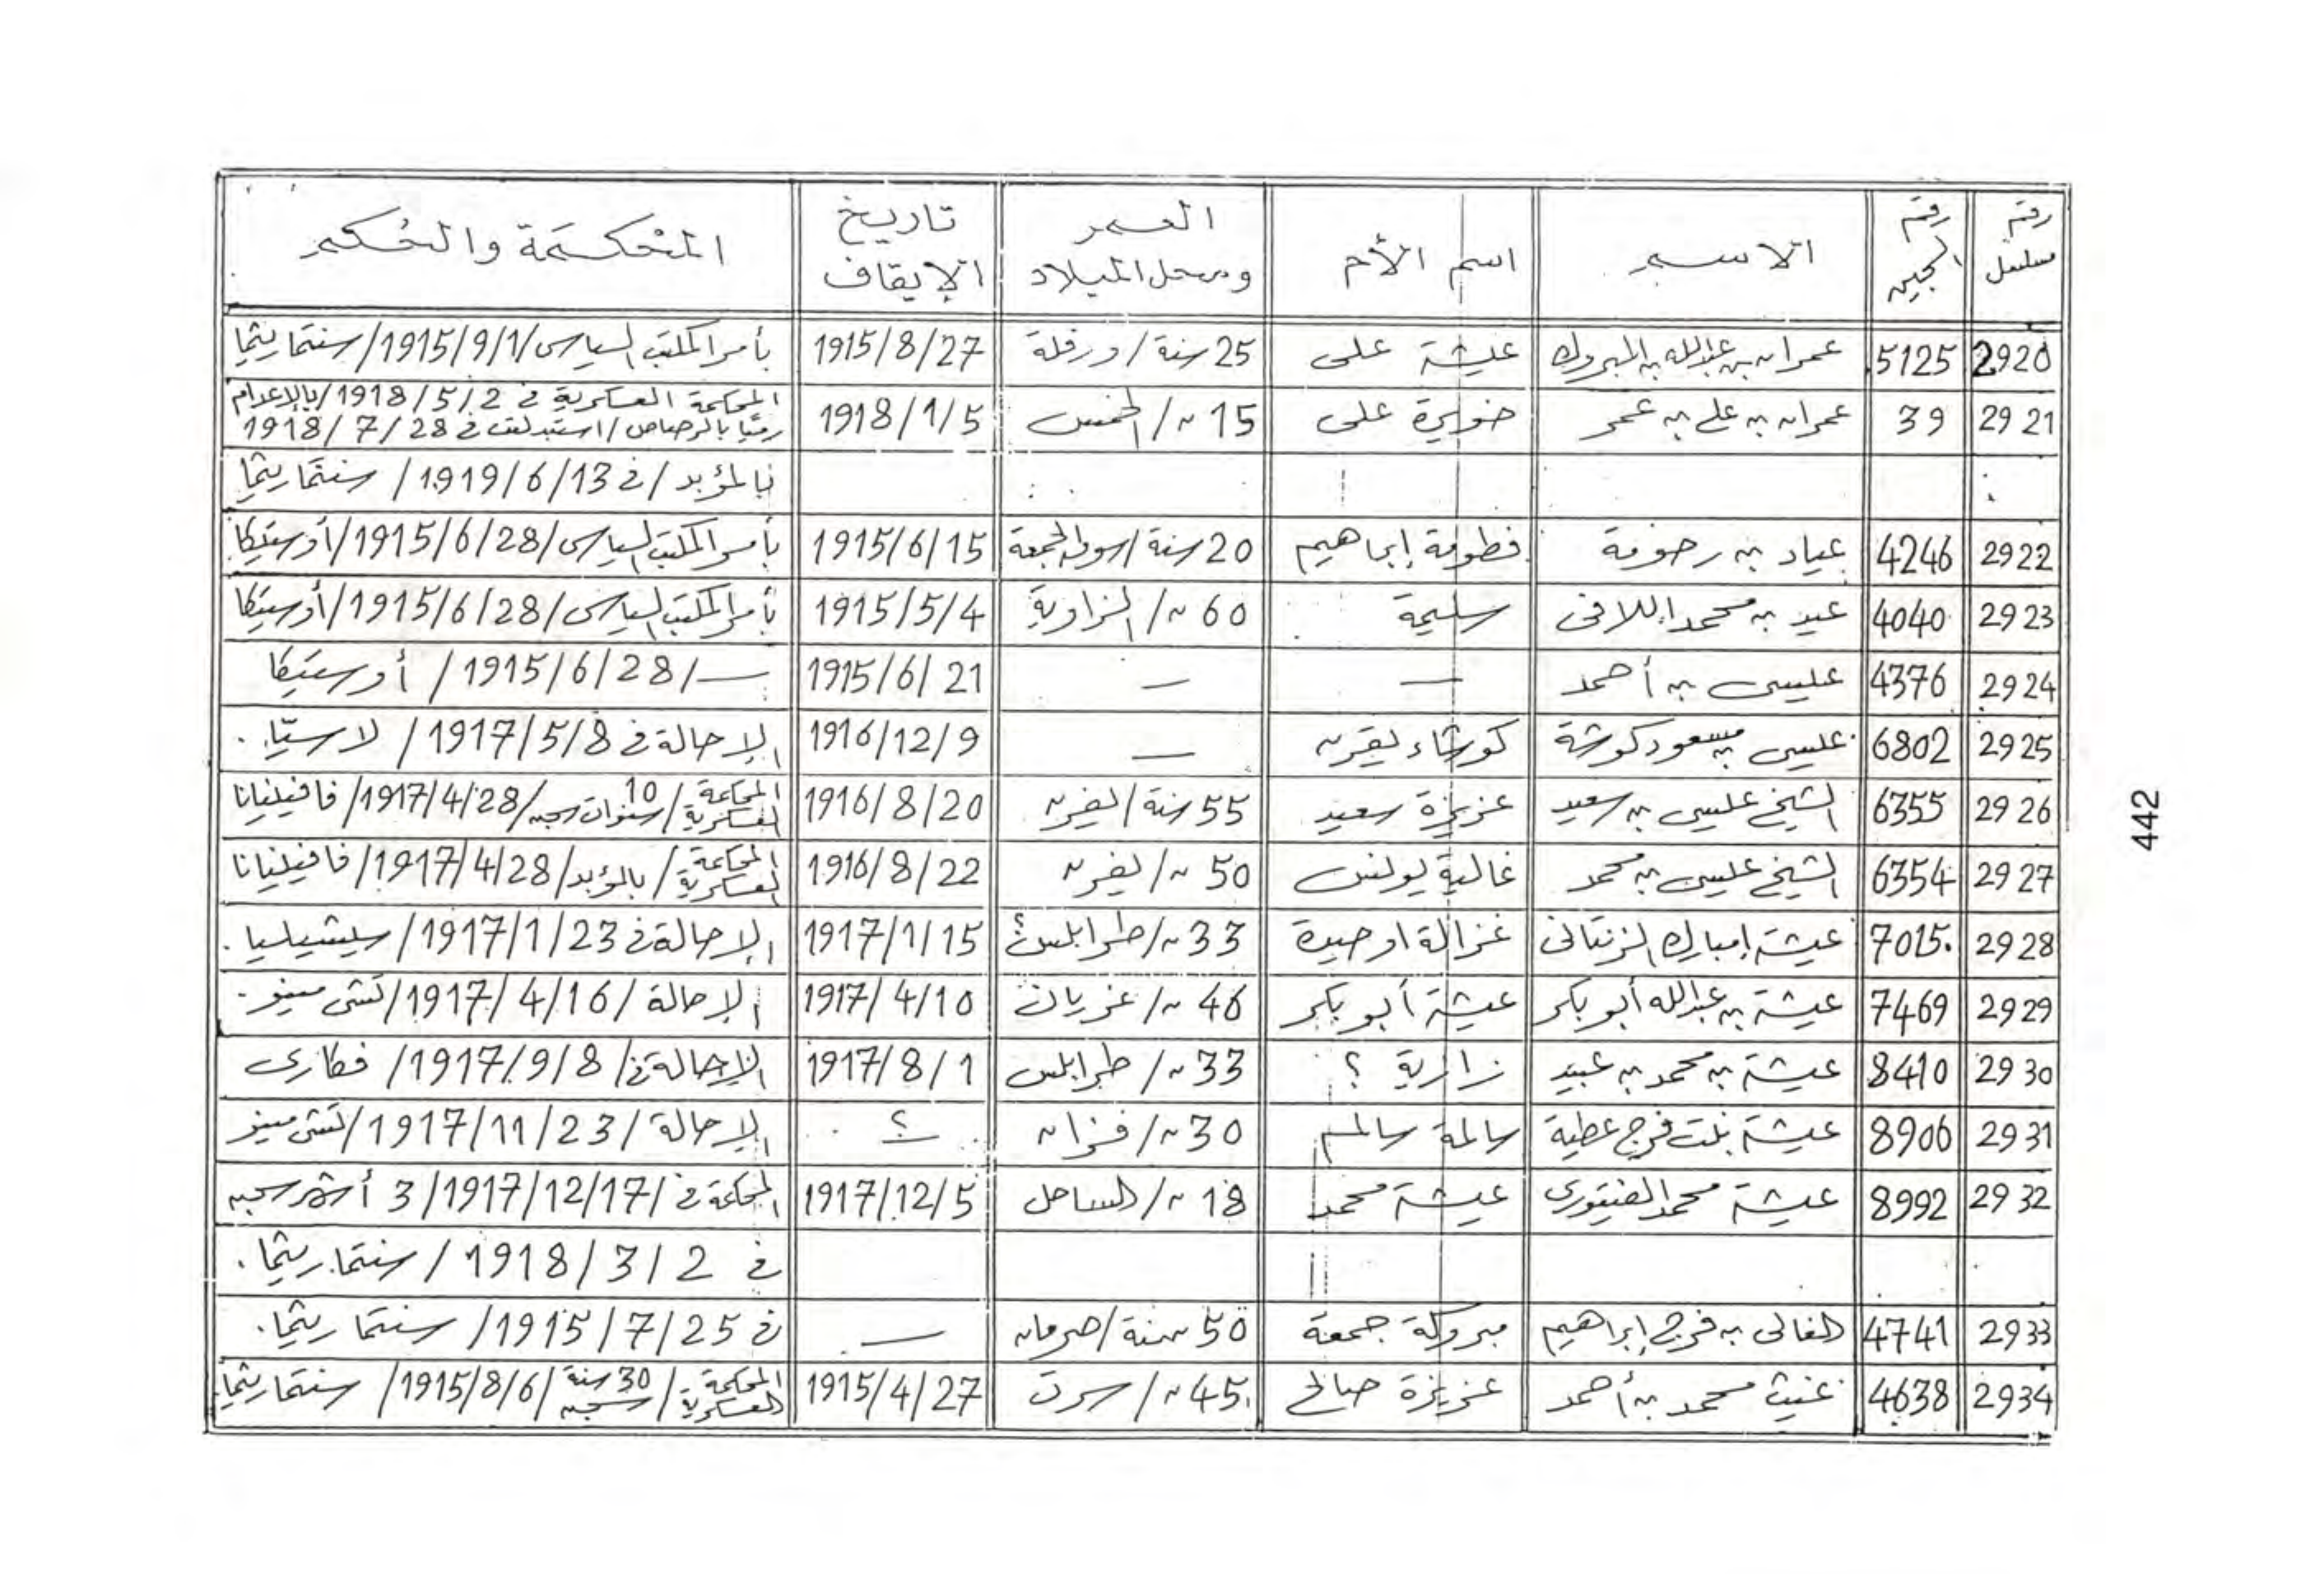 رقم مسلسل | رقم السجين | الاسم | اسم الأم | العمر ومحل الميلاد | تاريخ الإيقاف | المحكمة والحكم
2920 | 5125 | عمران بن عبدالله بن المبروك | عيشة على | 25 سنة / ورفلة | 1915/8/27 | بأمر المكتب السياسى / 1915/9/1 / سنتماريثما
2921 | 39 | عمران بن على بن عمر | خويرة على | 15 〃 / الخمس | 1918/1/5 | المحكمة العسكرية فى 1918/5/2 / بالإعدام
رميًا بالرصاص / استبدلت فى 1918/7/28
بالمؤبد / فى 1919/6/13 / سنتماريثما
2922 | 4246 | عياد بن رحومة | فطومة إبراهيم | 20 سنة / سوق الجمعة | 1915/6/15 | بأمر المكتب السياسى / 1915/6/28 / أوستيكا
2923 | 4040 | عيد بن محمد اللافى | سليمة | 60 〃 / الزاوية | 1915/5/4 | بأمر المكتب السياسى / 1915/6/28 / أوستيكا
2924 | 4376 | عيسى بن أحمد | — | — | 1915/6/21 | — / 1915/6/28 / أوستيكا
2925 | 6802 | عيسى بن مسعود كوشة | كوشاء يفرن | — | 1916/12/9 | الإحالة فى 1917/5/8 / لاستيا.
2926 | 6355 | الشيخ عيسى بن سعيد | عزيزة سعيد | 55 سنة / يفرن | 1916/8/20 | المحكمة العسكرية / 10 سنوات سجن / 1917/4/28 / فافينيانا
2927 | 6354 | الشيخ عيسى بن محمد | غالية يونس | 50 〃 / يفرن | 1916/8/22 | المحكمة العسكرية / بالمؤبد / 1917/4/28 / فافينيانا
2928 | 7015 | عيشة إمبارك الزنتانى | غزالة اوحيدة | 33 〃 / طرابلس؟ | 1917/1/15 | الإحالة فى 1917/1/23 / سيشيليا.
2929 | 7469 | عيشة بن عبدالله أبو بكر | عيشة أبو بكر | 46 〃 / غريان | 1917/4/10 | الإحالة / 1917/4/16 / تنتى مينو.
2930 | 8410 | عيشة بن محمد بن عبيد | زارية ؟ | 33 〃 / طرابلس | 1917/8/1 | الإحالة فى / 1917/9/8 / فطارى
2931 | 8906 | عيشة بنت فرج عطية | سالمة سالم | 30 〃 / فزان | ؟ | الإحالة / 1917/11/23 / تنتى مينو
2932 | 8992 | عيشة محمد الفيتورى | عيشة محمد | 18 〃 / الساحل | 1917/12/5 | المحكمة فى / 1917/12/17 / 3 أشهر سجن
فى 1918/3/2 / سنتماريثما.
2933 | 4741 | الغالى بن فرج إبراهيم | مبروكة جمعة | 50 سنة / صرمان | — | فى 1915/7/25 / سنتماريثما.
2934 | 4638 | غيث محمد بن أحمد | عزيزة صالح | 45 〃 / سرت | 1915/4/27 | المحكمة العسكرية / 30 سنة سجن / 1915/8/6 / سنتماريثما
442